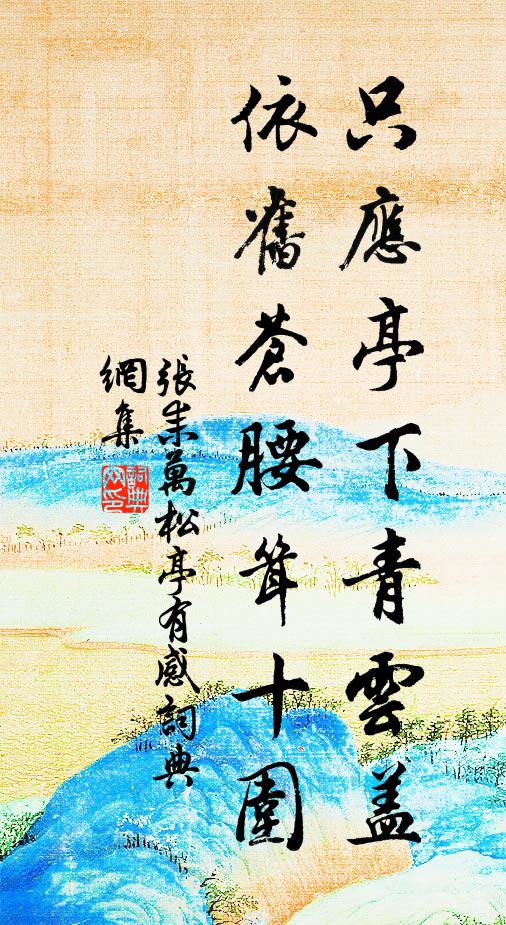 只應亭下青雲盖
依舊蒼腰耸十圍
張耒萬松亭有感詞典
網集